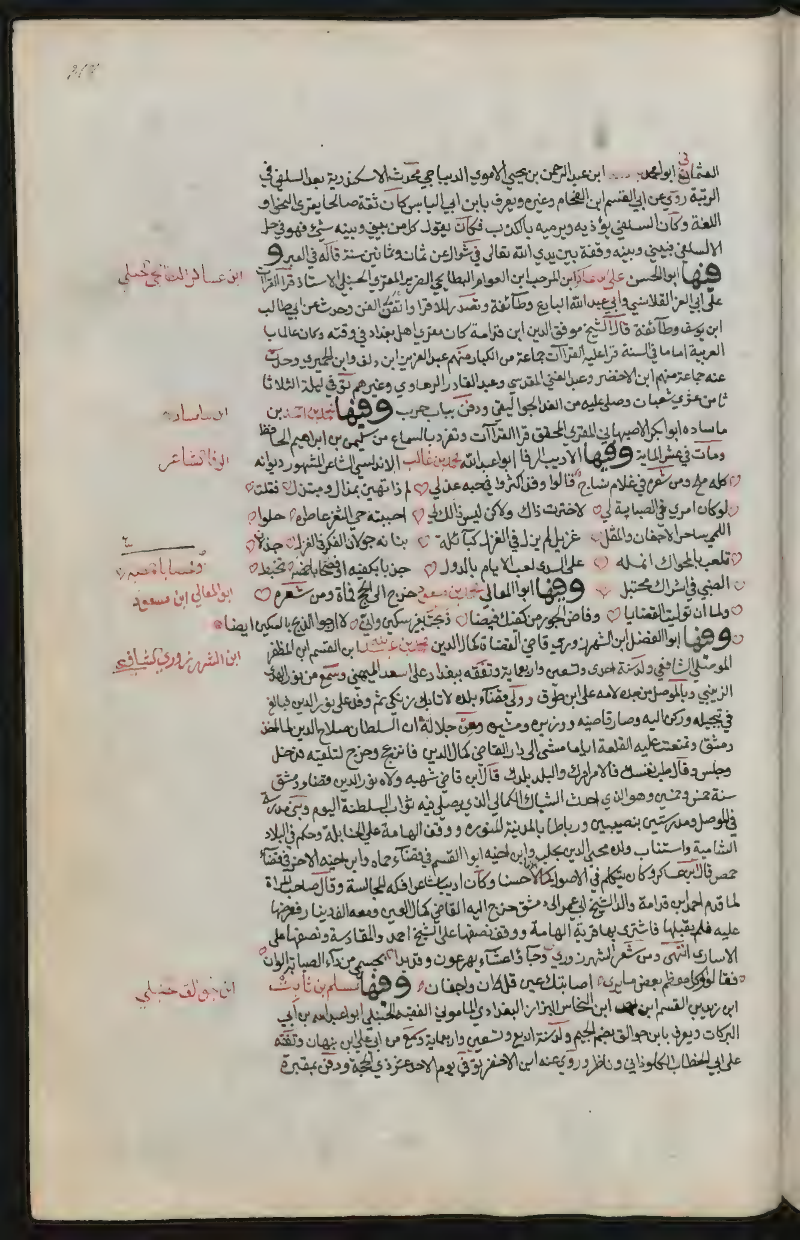 العثماني ابو محمد ابن عبد الرحمن بن يحيى الاموي الديباجي محدث الاسكندرية بعد السلفي في
الرتبة روى عن ابي القسم ابن الفحام وغيره ويعرف بابن ابي الياس كان ثقة صالحا يقرئ النحو و
اللغة وكان السلفي يؤذيه ويرميه بالكذب فكان يقول كل من بيني وبينه شئ فهو في حل
الا السلفي فبيني وبينه وقفة بين يدي الله تعالى في شوال عن ثمان وثمانين سنة قاله في العبر و
فيها ابو الحسن علي بن عساكر ابن المرحب ابن العوام البطايحي الضرير المقري الحنبلي الاستاذ قرا القراآت
ابن عساكر البطايحي الحنبلي
على ابي العز القلانسي وابي عبد الله البارع وطائفة وتصدر للاقرا واتقن الفن وحدث عن ابي طالب
ابن يوسف وطائفة قال الشيخ موفق الدين ابن قدامة كان مقري اهل بغداد في وقته وكان عالما ب
العربية اماما في السنة قرا عليه القراآت جماعة من الكبار منهم عبد العزيز ابن دلف وابن الحميري وحدث
عنه جماعة منهم ابن الاخضر وعبد الغني المقدسي وعبد القادر الرهاوي وغيرهم توفي ليلة الثلاثا
ثامن عشري شعبان وصلي عليه من الغد الجواليقي ودفن بباب حرب وفيها محمد بن احمد بن
ماساده ابو بكر الاصبهاني المقري المحقق قرا القراآت وتفرد بالسماع من سليمن بن ابراهيم الحافظ
ومات في عشر الماية وفيها الاديب الرفا ابو عبد الله محمد بن غالب الاندلسي الشاعر المشهور ديوانه
الرفا الشاعر
كله ملح ومن شعره في غلام نساج قالوا وقد اكثروا في حبه عذلي لم ذا تهيم بمذال ومبتذل فقلت
لو كان امري في الصبابة لي لاخترت ذاك ولكن ليس ذلك لي احببته حبي الثغر عاطره حلوا
اللمى ساحر الاجفان والمقل غزيل لم يزل في الغزل كبائلة بنانه جولان الفكر في الغزل جذلان
تلعب بالمحواك انمله على السدى لعب الايام بالدول
الظبي في اشراك محتبل وفيها ابو المعالي خرج الى الحج فمات ومن شعره
ابو المعالي ابن مسعود
ولما ان توليت القضايا وفاض الجور من كفيك فيضا ذبحت بغير سكين واني لارجوا الذبح بالسكين ايضا
وفيها ابو الفضل ابن الشهرزوري قاضي القضاة كمال الدين محمد بن عبد الله ابن القسم ابن المظفر
ابن الشهرزوري الشافعي
الموصلي الشافعي ولد سنة احدى وتسعين واربعماية وتفقه ببغداد على اسعد الميهني وسمع من نور الهدى
الزينبي وبالموصل من جده لامه علي ابن طوق وولي قضاء بلده لاتابك زنكي ثم وفد على نور الدين فبالغ
في تبجيله وركن اليه وصار قاضيه ووزيره ومشيره ومن جلالته ان السلطان صلاح الدين لما اخذ
دمشق وتمنعت عليه القلعة اياما مشى الى دار القاضي كمال الدين فانزعج وخرج لتلقيه فدخل
وجلس وقال طب نفسا فالامر امرك والبلد بلدك قال ابن قاضي شهبه ولاه نور الدين قضاء دمشق
سنة خمس وخمسين وهو الذي احدث الشباك الكمالي الذي يصلي فيه نواب السلطنة اليوم وبنى مدرسة
في الموصل ومدرستين بنصيبين ورباطا بالمدينة المنورة ووقف الهامة على الحنابلة وحكم في البلاد
الشامية واستناب ولده محيي الدين بحلب وابن اخيه ابو القسم في قضاء حماه وابن اخيه الاخر في قضاء
حمص قال ابن عساكر وكان يتكلم في الاصول كلاما حسنا وكان اديبا شاعرا فكه المجالسة وقال صاحب المراة
لما قدم احمد ابن قدامة والد الشيخ ابي عمر الى دمشق خرج اليه القاضي كمال الدين ومعه الف دينار فعرضها
عليه فلم يقبلها فاشترى بها قرية الهامة ووقف نصفها على الشيخ احمد والمقادسة ونصفها على
الاسارى انتهى ومن شعر الشهرزوري وجاؤا عشاء يهرعون وقد بدا بجسمي من داء الصبابة الوان
فقالوا وكل معظم بعض ما يرى اصابتك عين قلت ان واجفان وفيها مسلم بن ثابت
ابن جوالق حنبلي
ابن زيد بن القسم ابن احمد ابن النخاس البزاز البغدادي الماموني الفقيه الحنبلي ابو عبد الله بن ابي
البركات ويعرف بابن جوالق بضم الجيم ولد سنة اربع وتسعين واربعماية وسمع من ابي علي ابن نبهان وتفقه
على ابي الخطاب الكلوذاني وناظر وروى عنه ابن الاخضر توفي يوم الاحد عشر ذي الحجة ودفن بمقبرة